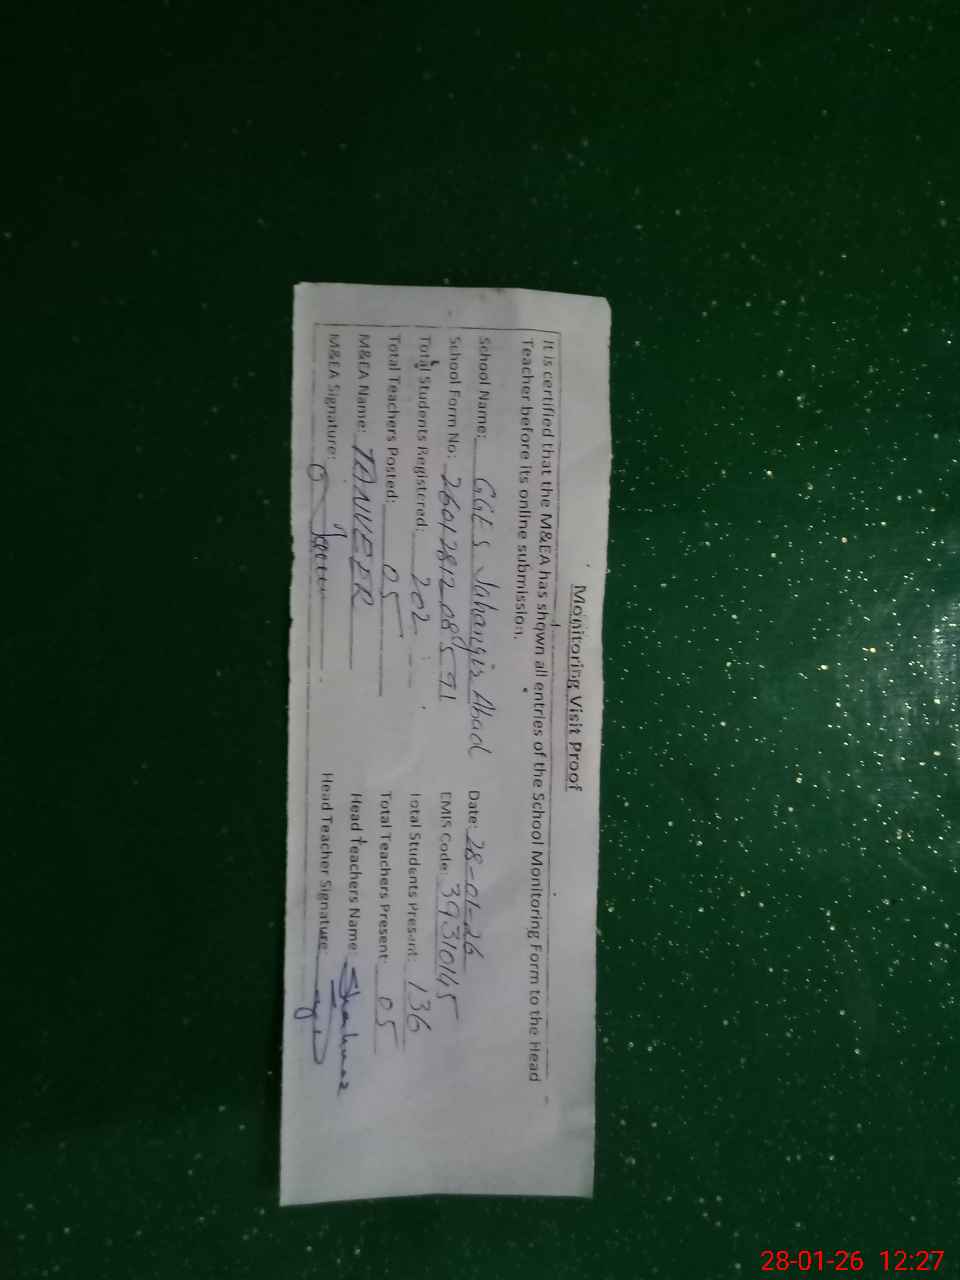 Monitoring Visit Proof
It is certified that the M&EA has shown all entries of the School Monitoring Form to the Head
Teacher before its online submission.
School Name: GGES Jahangir Abad Date: 28-01-26
School Form No: 2601281208591 EMIS Code: 39310145
Total Students Registered: 202 Total Students Present: 136
Total Teachers Posted: 05 Total Teachers Present: 05
M&EA Name: TANVEER Head Teachers Name: Shahnaz
M&EA Signature: Head Teacher Signature:
28-01-26 12:27